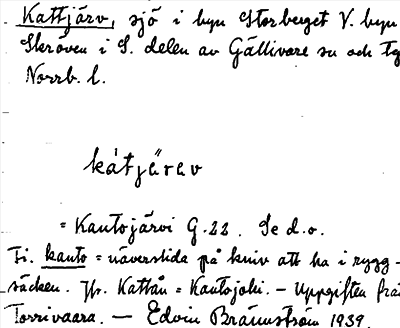 Kattjärv, sjö i byn Storberget V. byn
Skröven i S. delen av Gällivare sn och Tg
Norrb. l.
kàtjärav
= Kantojärvi G.22. Se d.o.
Fi. kanto = näverstida på kniv att ha i rygg-
säcken. Jfr. Kattån = Kantojoki. - Uppgiften från
Torrivaara. - Edvin Brännström 1939.